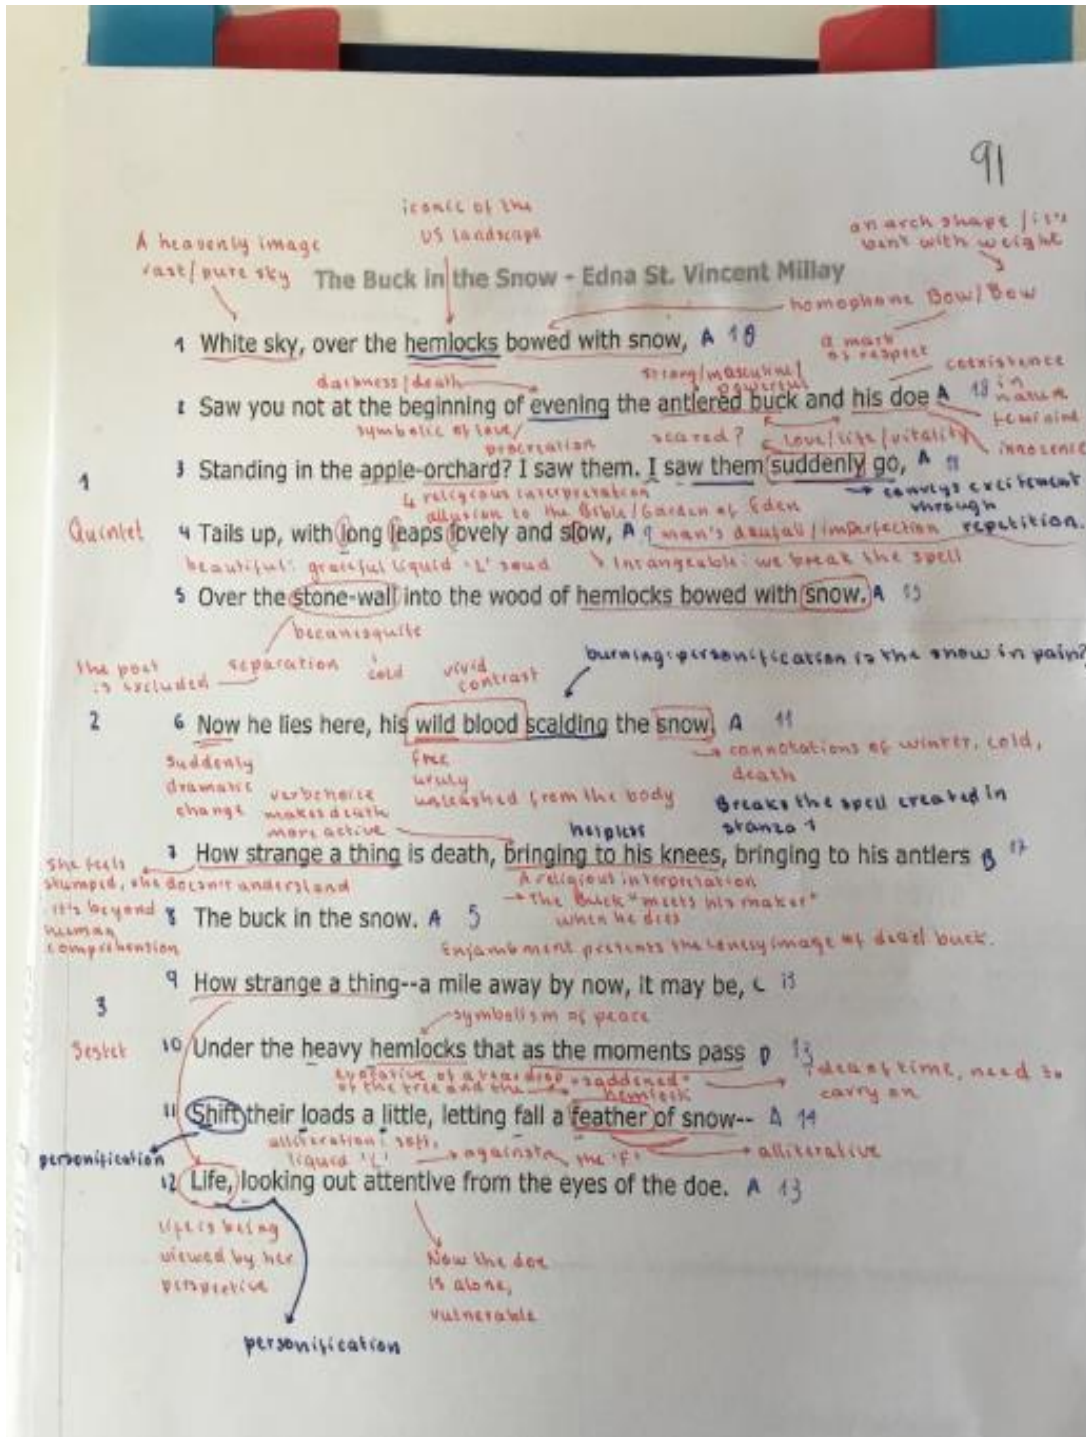 91
iconic of the
US landscape
an arch shape / it's
bent with weight
A heavenly image
vast/pure sky
The Buck in the Snow - Edna St. Vincent Millay
homophone Bow/Bow
1 White sky, over the hemlocks bowed with snow, A 10
a mark
of respect
coexistence
in
nature
darkness/death
strong/masculine/
powerful
2 Saw you not at the beginning of evening the antlered buck and his doe A 18
feminine
innocence
symbolic of love/
procreation
scared?
love/life/vitality
3 Standing in the apple-orchard? I saw them. I saw them suddenly go, A
1
religious interpretation
allusion to the Bible/Garden of Eden
conveys excitement
through
repetition.
Quintet
4 Tails up, with long leaps lovely and slow, A 9 man's downfall/imperfection
beautiful: graceful liquid 'L' sound
Intangeable: we break the spell
5 Over the stone-wall into the wood of hemlocks bowed with snow. A 15
separation
cold
vivid
contrast
burning: personification is the snow in pain?
the poet
is excluded
2
6 Now he lies here, his wild blood scalding the snow. A 11
connotations of winter, cold,
death
Suddenly
dramatic
change
verb choice
makes death
more active
free
unruly
unleashed from the body
Breaks the spell created in
stanza 1
helpless
7 How strange a thing is death, bringing to his knees, bringing to his antlers B 17
she feels
stumped, she doesn't understand
it's beyond
human
comprehension
A religious interpretation
The Buck "meets his maker"
when he dies
8 The buck in the snow. A 5
Enjambment presents the lonely image of dead buck.
9 How strange a thing--a mile away by now, it may be, C 13
3
symbolism of peace
Sestet
10 Under the heavy hemlocks that as the moments pass D 13
evocative of a teardrop "saddened"
of the tree and the hemlock
idea of time, need to
carry on
11 Shift their loads a little, letting fall a feather of snow-- A 14
personification
alliteration: soft,
liquid 'L'
against the 'F'
alliterative
12 Life, looking out attentive from the eyes of the doe. A 13
life is being
viewed by her
perspective
Now the doe
is alone,
vulnerable
personification